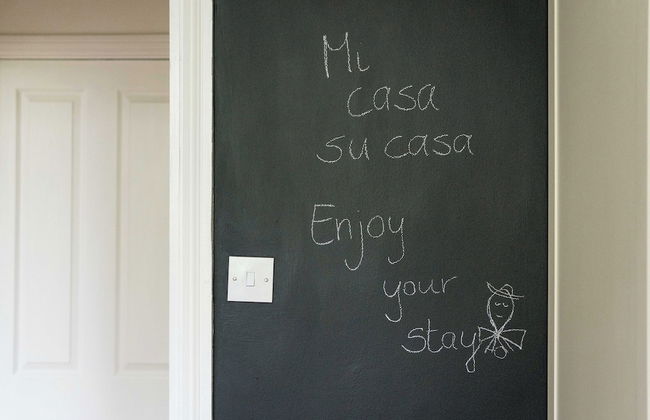 Mi
casa
su casa
Enjoy
your
stay